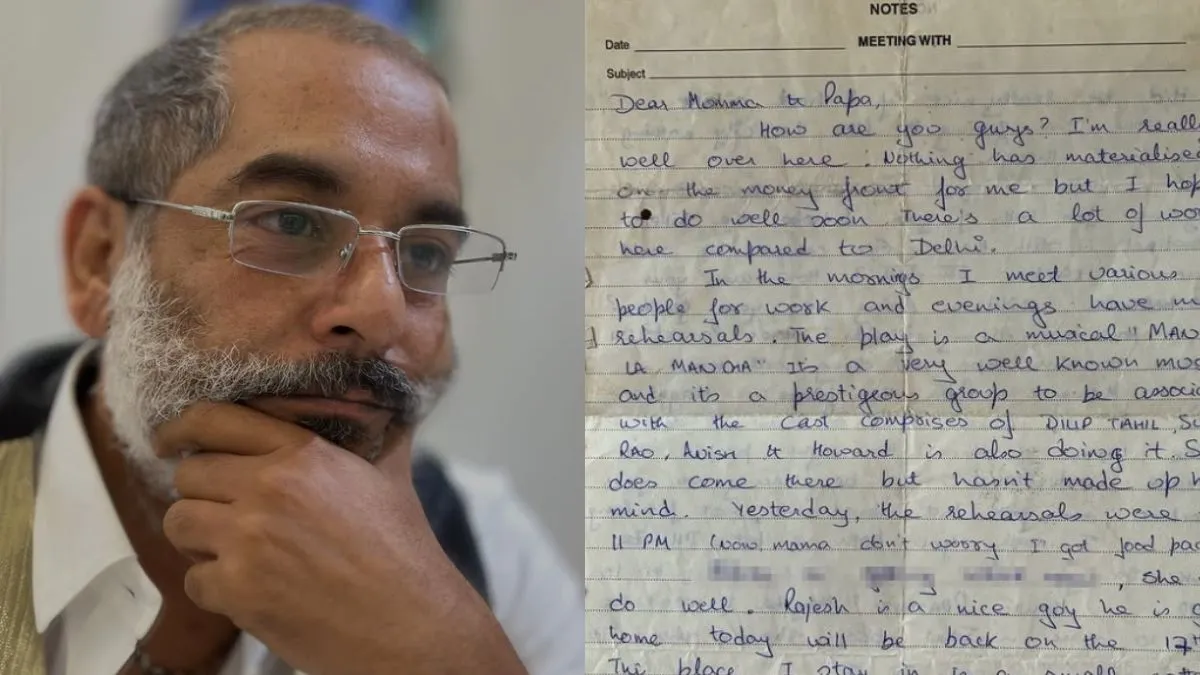 NOTES
Date MEETING WITH
Subject
Dear Momma & Papa,
How are you guys? I'm really
well over here. Nothing has materialise
on the money front for me but I hop
to do well soon There's a lot of wor
here compared to Delhi.
In the mornings I meet various
people for work and evenings have m
rehearsals. The play is a musical "MAN
LA MANCHA" Its a very well known mus
and it's a prestigeous group to be associ
with the cast comprises of DILIP TAHIL, SU
RAO, Avish & Howard is also doing it. S
does come there but hasn't made up h
mind. Yesterday, the rehearsals were
11 PM (now mama don't worry I got food pac
, she
do well. Rajesh is a nice guy he is g
home today will be back on the 17th
The place I stay in is a small